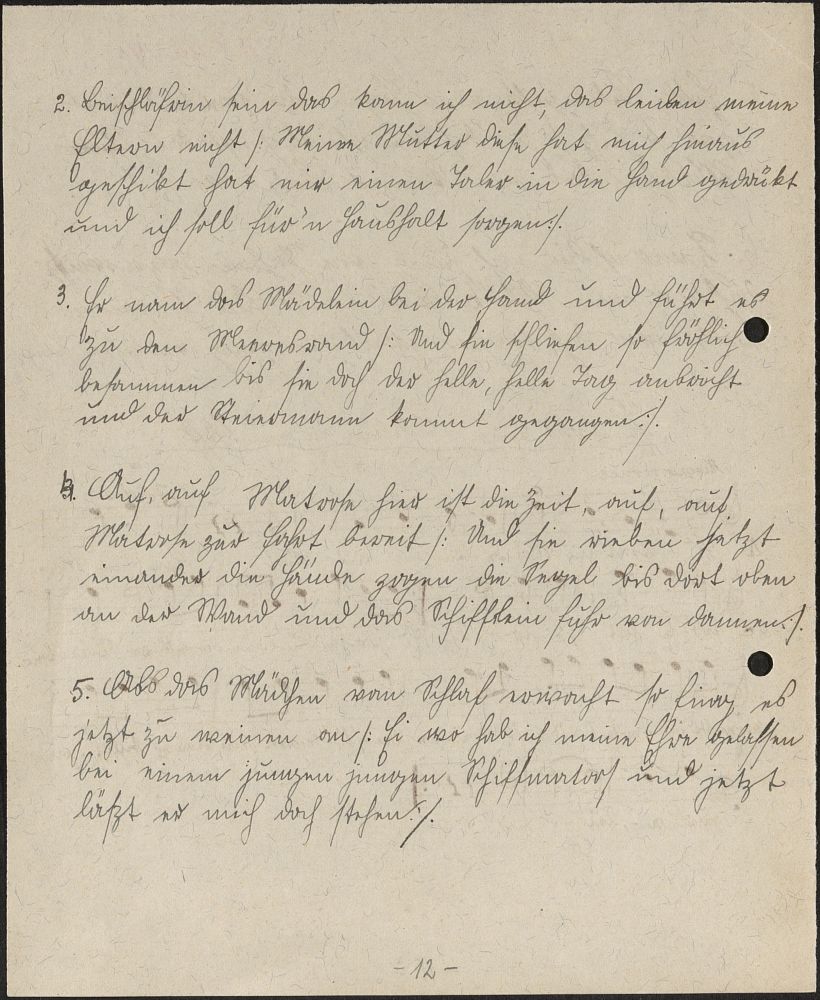 2. Beischläfrin sein das kann ich nicht, das leiden meine
Eltern nicht /: Meine Mutter diese hat mich hinaus
geschikt hat mir einen Taler in die Hand gedrükt
und ich soll für'n Haushalt sorgen :/.
3. Er nam das Mädelein bei der Hand und führt es
zu den Meeresrand /: Und sie schliefen so fröhlich
besammen bis sie doch der helle, helle Tag anbricht
und der Steiermann kommt gegangen :/.
4. Auf, auf Matrose hier ist die Zeit, auf, auf
Matrose zur Fahrt bereit /: Und sie rieben jetzt
einander die Hände zogen die Segel bis dort oben
an der Wand und das Schifflein fuhr von dannen :/.
5. Als das Mädchen vom Schlaf erwacht so fing es
jetzt zu weinen an /: Ei wo hab ich meine Ehre gelassen
bei einem jungen jungen Schiffmatros und jetzt
läßt er mich doch stehen :/.
- 12 -